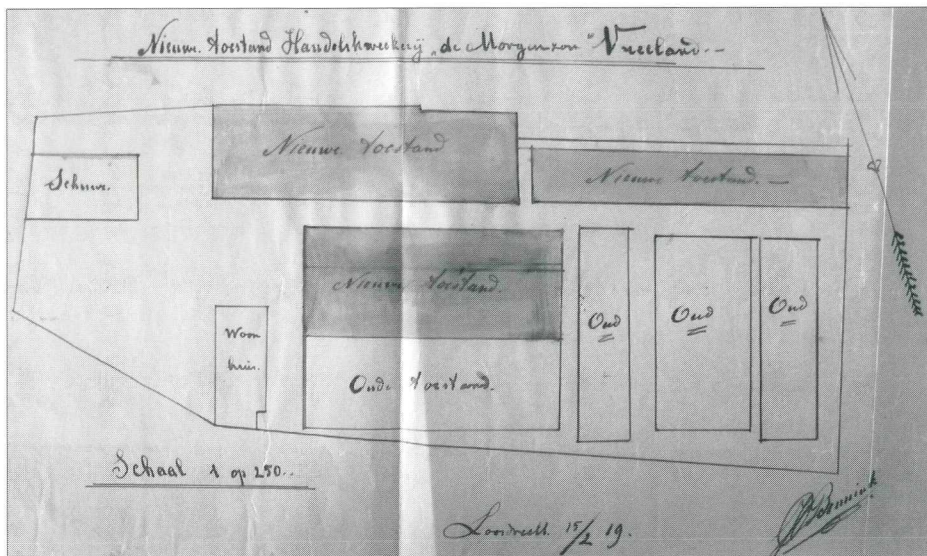 Nieuwe toestand Handelskweekerij „de Morgenzon" Vreeland.-
Nieuwe toestand
Schuur.
Nieuwe toestand. —
Nieuwe toestand.
Oud
Oud
Oud
Woon
huis.
Oude toestand.
Schaal 1 op 250..
Loosdrecht 15/2 19.